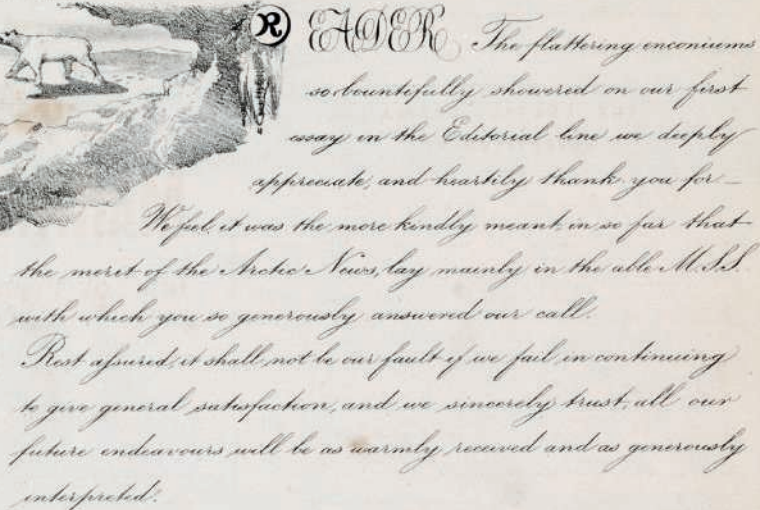 READER The flattering enconiums
so bountifully showered on our first
essay in the Editorial line we deeply
appreciate, and heartily thank you for_
We feel it was the more kindly meant, in so far that
the merit of the Arctic News, lay mainly in the able M.S.S.
with which you so generously answered our call.
Rest assured, it shall, not be our fault if we fail, in continuing
to give general satisfaction, and we sincerely trust, all our
future endeavours will be as warmly received and as generously
interpreted.